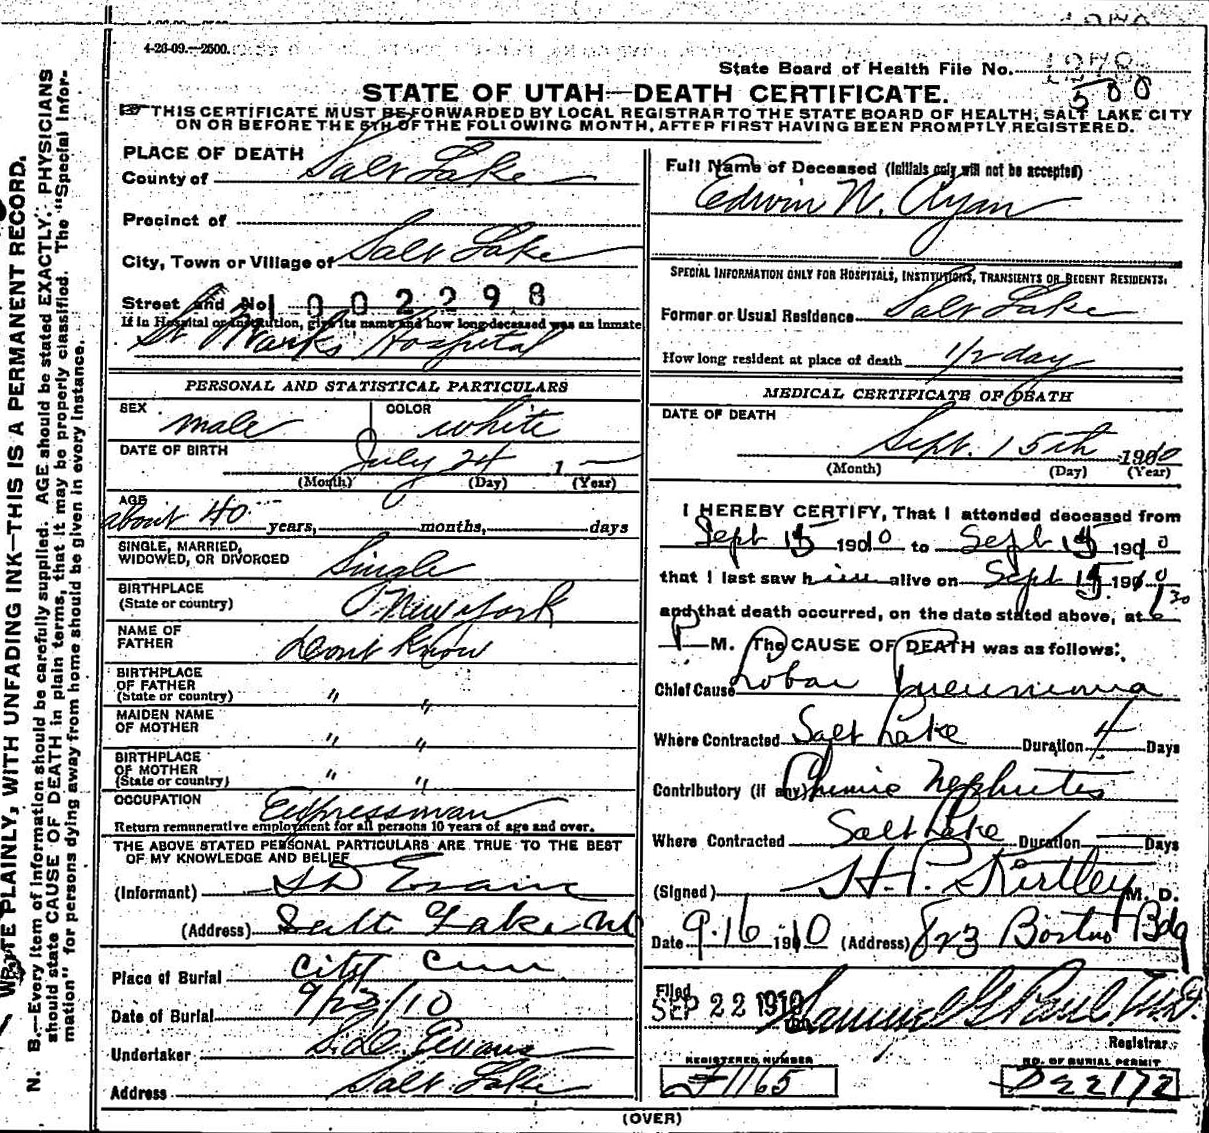 4-26-09.—2500.
State Board of Health File No.
500
STATE OF UTAH—DEATH CERTIFICATE.
THIS CERTIFICATE MUST BE FORWARDED BY LOCAL REGISTRAR TO THE STATE BOARD OF HEALTH, SALT LAKE CITY
ON OR BEFORE THE 5TH OF THE FOLLOWING MONTH, AFTER FIRST HAVING BEEN PROMPTLY REGISTERED.
WRITE PLAINLY, WITH UNFADING INK—THIS IS A PERMANENT RECORD.
N. B.—Every item of information should be carefully supplied. AGE should be stated EXACTLY. PHYSICIANS
should state CAUSE OF DEATH in plain terms, that it may be properly classified. The "Special Infor-
mation" for persons dying away from home should be given in every instance.
PLACE OF DEATH
County of Salt Lake
Precinct of
City, Town or Village of Salt Lake
Street and No. 1002298
If in Hospital or institution, give its name and how long deceased was an inmate
St Marks Hospital
PERSONAL AND STATISTICAL PARTICULARS
SEX male COLOR white
DATE OF BIRTH July 24 1—
(Month) (Day) (Year)
AGE about 40 years, months, days
SINGLE, MARRIED,
WIDOWED, OR DIVORCED Single
BIRTHPLACE
(State or country) New York
NAME OF
FATHER Dont Know
BIRTHPLACE
OF FATHER
(State or country) " "
MAIDEN NAME
OF MOTHER " "
BIRTHPLACE
OF MOTHER
(State or country) " "
OCCUPATION Expressman
Return remunerative employment for all persons 10 years of age and over.
THE ABOVE STATED PERSONAL PARTICULARS ARE TRUE TO THE BEST
OF MY KNOWLEDGE AND BELIEF
(Informant) SD Evans
(Address) Salt Lake
Place of Burial City Cem
Date of Burial 9/23/10
Undertaker S.D. Evans
Address Salt Lake
Full Name of Deceased (Initials only will not be accepted)
Edwin N. Ryan
SPECIAL INFORMATION ONLY FOR HOSPITALS, INSTITUTIONS, TRANSIENTS OR RECENT RESIDENTS.
Former or Usual Residence Salt Lake
How long resident at place of death 1/2 day
MEDICAL CERTIFICATE OF DEATH
DATE OF DEATH
Sept. 15th 1910
(Month) (Day) (Year)
I HEREBY CERTIFY, That I attended deceased from
Sept 15 1910 to Sept 15 1910
that I last saw him alive on Sept 15. 1910
and that death occurred, on the date stated above, at 6 30
P M. The CAUSE OF DEATH was as follows:
Chief Cause Lobar Pneumonia
Where Contracted Salt Lake Duration 4 Days
Contributory (if any) Chronic Nephritis
Where Contracted Salt Lake Duration — Days
(Signed) H. P. Kirtley M. D.
Date 9.16 1910 (Address) 823 Boston Bdg
Filed
SEP 22 1910 Samuel G Paul M.D.
Registrar
REGISTERED NUMBER
F1165
NO. OF BURIAL PERMIT
D22172
(OVER)